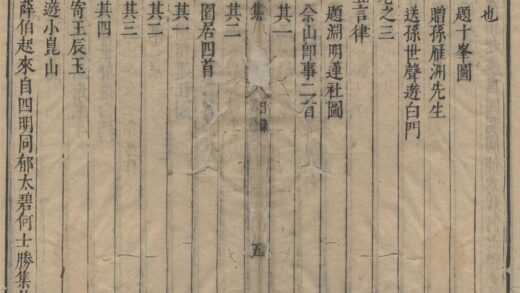 也
題十峯圖
贈孫雁洲先生
送孫世聲遊白門
之三
言律
題淵明蓮社圖
佘山即事二首
其一
集 八 目錄 五
其二
園居四首
其一
其二
其三
其四
寄王辰玉
遊小崑山
薛伯起來自四明同郁太碧何士勝集